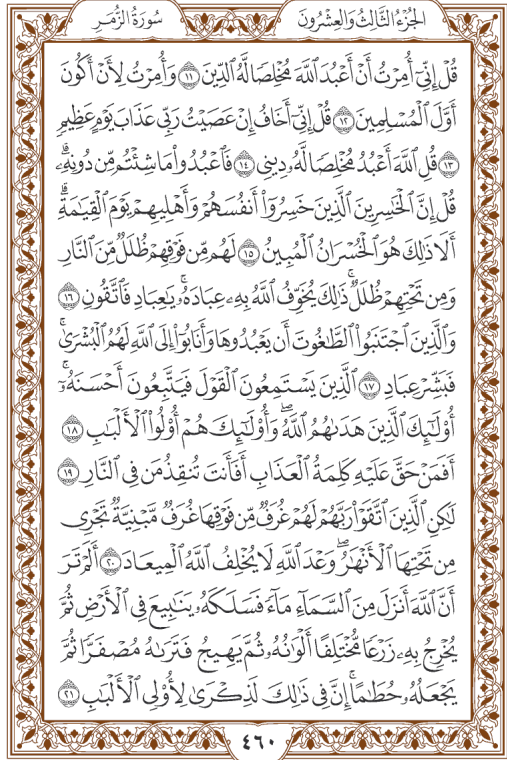 الجُزْءُ الثَّالِثُ وَالعِشْرُونَ
سُورَةُ الزُّمَر
قُلْ إِنِّيٓ أُمِرْتُ أَنْ أَعْبُدَ ٱللَّهَ مُخْلِصًا لَّهُ ٱلدِّينَ ١١ وَأُمِرْتُ لِأَنْ أَكُونَ
أَوَّلَ ٱلْمُسْلِمِينَ ١٢ قُلْ إِنِّيٓ أَخَافُ إِنْ عَصَيْتُ رَبِّي عَذَابَ يَوْمٍ عَظِيمٍ
١٣ قُلِ ٱللَّهَ أَعْبُدُ مُخْلِصًا لَّهُۥ دِينِي ١٤ فَٱعْبُدُوا۟ مَا شِئْتُم مِّن دُونِهِۦۗ
قُلْ إِنَّ ٱلْخَٰسِرِينَ ٱلَّذِينَ خَسِرُوٓا۟ أَنفُسَهُمْ وَأَهْلِيهِمْ يَوْمَ ٱلْقِيَٰمَةِۗ
أَلَا ذَٰلِكَ هُوَ ٱلْخُسْرَانُ ٱلْمُبِينُ ١٥ لَهُم مِّن فَوْقِهِمْ ظُلَلٌ مِّنَ ٱلنَّارِ
وَمِن تَحْتِهِمْ ظُلَلٌۚ ذَٰلِكَ يُخَوِّفُ ٱللَّهُ بِهِۦ عِبَادَهُۥۚ يَٰعِبَادِ فَٱتَّقُونِ ١٦
وَٱلَّذِينَ ٱجْتَنَبُوا۟ ٱلطَّٰغُوتَ أَن يَعْبُدُوهَا وَأَنَابُوٓا۟ إِلَى ٱللَّهِ لَهُمُ ٱلْبُشْرَىٰۚ
فَبَشِّرْ عِبَادِ ١٧ ٱلَّذِينَ يَسْتَمِعُونَ ٱلْقَوْلَ فَيَتَّبِعُونَ أَحْسَنَهُۥٓۚ
أُو۟لَٰٓئِكَ ٱلَّذِينَ هَدَىٰهُمُ ٱللَّهُۖ وَأُو۟لَٰٓئِكَ هُمْ أُو۟لُوا۟ ٱلْأَلْبَٰبِ ١٨
أَفَمَنْ حَقَّ عَلَيْهِ كَلِمَةُ ٱلْعَذَابِ أَفَأَنتَ تُنقِذُ مَن فِي ٱلنَّارِ ١٩
لَٰكِنِ ٱلَّذِينَ ٱتَّقَوْا۟ رَبَّهُمْ لَهُمْ غُرَفٌ مِّن فَوْقِهَا غُرَفٌ مَّبْنِيَّةٌ تَجْرِي
مِن تَحْتِهَا ٱلْأَنْهَٰرُۖ وَعْدَ ٱللَّهِ لَا يُخْلِفُ ٱللَّهُ ٱلْمِيعَادَ ٢٠ أَلَمْ تَرَ
أَنَّ ٱللَّهَ أَنزَلَ مِنَ ٱلسَّمَآءِ مَآءً فَسَلَكَهُۥ يَنَٰبِيعَ فِي ٱلْأَرْضِ ثُمَّ
يُخْرِجُ بِهِۦ زَرْعًا مُّخْتَلِفًا أَلْوَٰنُهُۥ ثُمَّ يَهِيجُ فَتَرَىٰهُ مُصْفَرًّا ثُمَّ
يَجْعَلُهُۥ حُطَٰمًاۚ إِنَّ فِي ذَٰلِكَ لَذِكْرَىٰ لِأُو۟لِي ٱلْأَلْبَٰبِ ٢١
٤٦٠